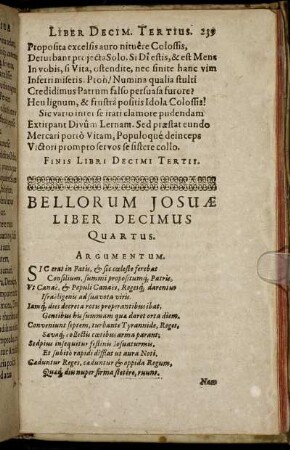 LIBER DECIM. TERTIUS. 239
Proposita excelsis auro nituêre Colossis,
Deturbant projecta Solo. Si Dî estis, & est Mens
In vobis, si Vita, ostendite, nec sinite hanc vim
Inferri miseris. Proh! Numina qualia stulti
Credidimus Patrum falso persuasa furore?
Heu lignum, & frustrà positis Idola Colossis!
Sic vario inter se irati clamore pudendam
Extirpant Divûm Lernam. Sed præstat eundo
Mercari portò Vitam, Populoque deinceps
Victori prompto servos se sistere collo.
FINIS LIBRI DECIMI TERTII.
BELLORUM JOSUÆ
LIBER DECIMUS
QUARTUS.
ARGUMENTUM.
SIC erat in Fatis, & sic cælesta ferebat
Consilium, summi propositumq; Patris,
Vt Canaë, & Populi Canais, Regesq; darentur
Israëligenis ad sua vota viris.
Iamq; dies decreta rotis properantibus ibat,
Gentibus hîs summam quæ daret orta diem.
Conveniunt septem, turbante Tyrannide, Reges,
Sævaq; collectis cœtibus arma parant;
Sed pius insequitur festinis Iosua turmis,
Et subitò rapidi difflat ut aura Noti,
Caduntur Reges, caduntur & oppida Regum,
Quæq; diu nuper firma stetêre, ruunt.
Nam